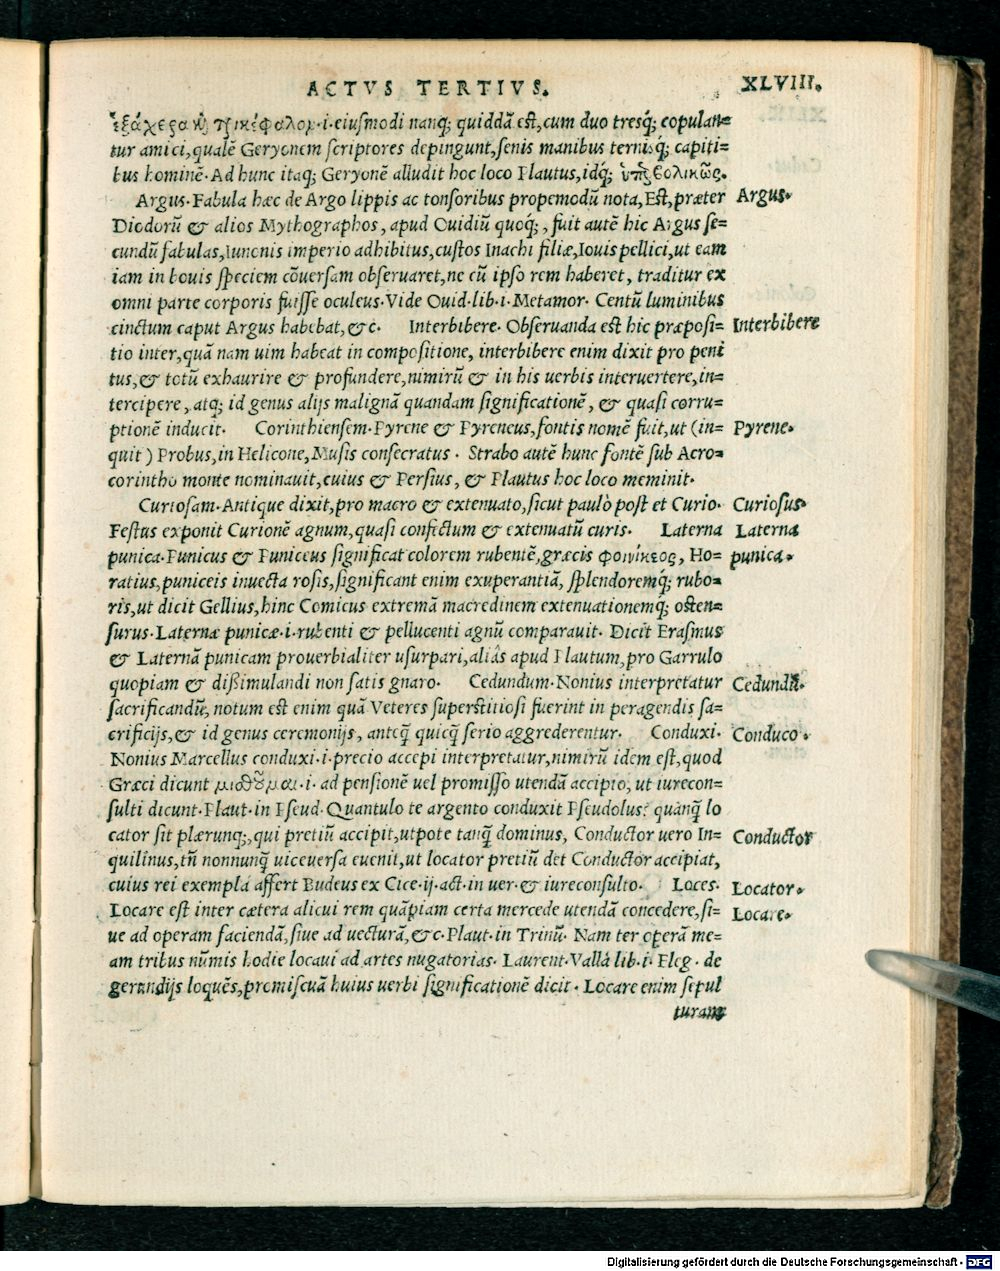 ACTVS TERTIVS. XLVIII.
ἑξάχερα καὶ τρικέφαλον·i·eiusmodi nanq́; quiddã est, cum duo tresq́; copulan=
tur amici, qualẽ Geryonem scriptores depingunt, senis manibus ternisq́; capiti=
bus hominẽ· Ad hunc itaq; Geryonẽ alludit hoc loco Plautus, idq́; ὑπερβολικῶς.
Argus· Fabula hæc de Argo lippis ac tonsoribus propemodũ nota, Est, præter Argus·
Diodorũ & alios Mythographos, apud Ouidiũ quoq́;, fuit autẽ hic Argus se=
cundũ fabulas, Iunonis imperio adhibitus, custos Inachi filiæ, Iouis pellici, ut eam
iam in bouis speciem cõuersam obseruaret, ne cũ ipso rem haberet, traditur ex
omni parte corporis fuisse oculeus· Vide Ouid·lib·i·Metamor· Centũ luminibus
cinctum caput Argus habebat, &c· Interbibere· Obseruanda est hic præposi= Interbibere
tio inter, quã nam uim habeat in compositione, interbibere enim dixit pro peni
tus, & totũ exhaurire & profundere, nimirũ & in his uerbis interuertere, in=
tercipere, atq; id genus alijs malignã quandam significationẽ, & quasi corru=
ptionẽ inducit· Corinthiensem· Pyrene & Pyreneus, fontis nomẽ fuit, ut (in= Pyrene·
quit) Probus, in Helicone, Musis consecratus · Strabo autẽ hunc fontẽ sub Acro=
corintho monte nominauit, cuius & Persius, & Plautus hoc loco meminit·
Curiosam· Antique dixit, pro macro & extenuato, sicut paulò post et Curio· Curiosus·
Festus exponit Curionẽ agnum, quasi confectum & extenuatũ curis· Laterna Laterna
punica· Punicus & Puniceus significat colorem rubentẽ, græcis φοινίκεος, Ho= punica·
ratius, puniceis inuecta rosis, significant enim exuperantiã, splendoremq́; rubo=
ris, ut dicit Gellius, hinc Comicus extremã macredinem extenuationemq́; osten=
surus· Laternæ punicæ·i·rubenti & pellucenti agnũ comparauit· Dicit Erasmus
& Laternã punicam prouerbialiter usurpari, aliâs apud Plautum, pro Garrulo
quopiam & dißimulandi non satis gnaro· Cedundum· Nonius interpretatur Cedundũ·
sacrificandũ, notum est enim quã Veteres superstitiosi fuerint in peragendis sa=
crificijs, & id genus ceremonijs, anteq̃ quicq̃ serio aggrederentur· Conduxi· Conduco·
Nonius Marcellus conduxi·i·precio accepi interpretatur, nimirũ idem est, quod
Græci dicunt μισθοῦμαι·i· ad pensionẽ uel promisso utendã accipio, ut iurecon=
sulti dicunt· Plaut·in Pseud· Quantulo te argento conduxit Pseudolus? quãnq̃ lo
cator sit plærunq;, qui pretiũ accipit, utpote tanq̃ dominus, Conductor uero In= Conductor
quilinus, tñ nonnunq̃ uiceuersa euenit, ut locator pretiũ det Conductor accipiat,
cuius rei exempla affert Budeus ex Cice·ij·act·in uer·& iureconsulto· Loces· Locator·
Locare est inter cætera alicui rem quãpiam certa mercede utendã concedere, si= Locare·
ue ad operam faciendã, siue ad uecturã, &c·Plaut·in Trinũ· Nam ter operã me=
am tribus nũmis hodie locaui ad artes nugatorias· Laurent·Valla lib·i·Eleg·de
gerundijs loquẽs, promiscuã huius uerbi significationẽ dicit · Locare enim sepul
turam
Digitalisierung gefördert durch die Deutsche Forschungsgemeinschaft - DFG